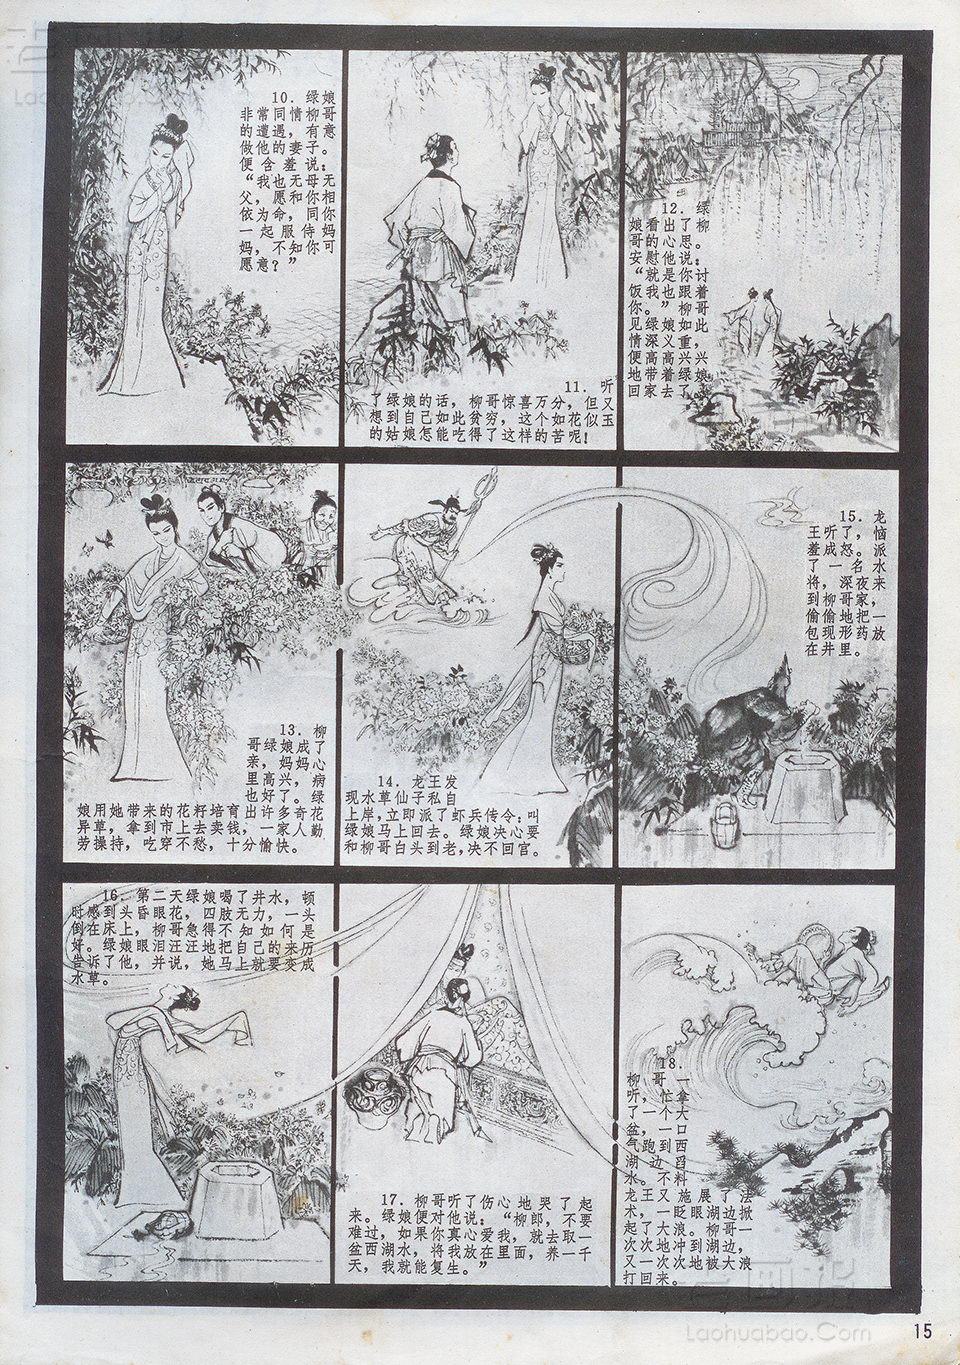 10．绿娘
非常同情柳哥
的遭遇，有意
做他的妻子。
便含羞说：
“我也无母无
父，愿和你相
依为命，同你
一起服侍妈
妈，不知你可
愿意？”
11．听
了绿娘的话，柳哥惊喜万分，但又
想到自己如此贫穷，这个如花似玉
的姑娘怎能吃得了这样的苦呢！
12．绿
娘看出了柳
哥的心思。
安慰他说：
“就是你讨
饭我也跟着
你。”柳哥
见绿娘如此
情深义重，
便高高兴兴
地带着绿娘
回家去了。
13．柳
哥绿娘成了
亲，妈妈心
里高兴，病
也好了。绿
娘用她带来的花籽培育出许多奇花
异草，拿到市上去卖钱，一家人勤
劳操持，吃穿不愁，十分愉快。
14．龙王发
现水草仙子私自
上岸，立即派了虾兵传令：叫
绿娘马上回去。绿娘决心要
和柳哥白头到老，决不回宫。
15．龙
王听了，恼
羞成怒。派
了一名水
将，深夜来
到柳哥家，
偷偷地把一
包现形药放
在井里。
16．第二天绿娘喝了井水，顿
时感到头昏眼花，四肢无力，一头
倒在床上，柳哥急得不知如何是
好。绿娘眼泪汪汪地把自己的来历
告诉了他，并说，她马上就要变成
水草。
17．柳哥听了伤心地哭了起
来。绿娘便对他说：“柳郎，不要
难过，如果你真心爱我，就去取一
盆西湖水，将我放在里面，养一千
天，我就能复生。”
18．
柳哥一
听，忙拿
了一个大
盆，一口
气跑到西
湖边舀
水。不料
龙王又施展了法
术，一眨眼湖边掀
起了大浪。柳哥一
次次地冲到湖边，
又一次次地被大浪
打回来。
15
Laohuabao.Com